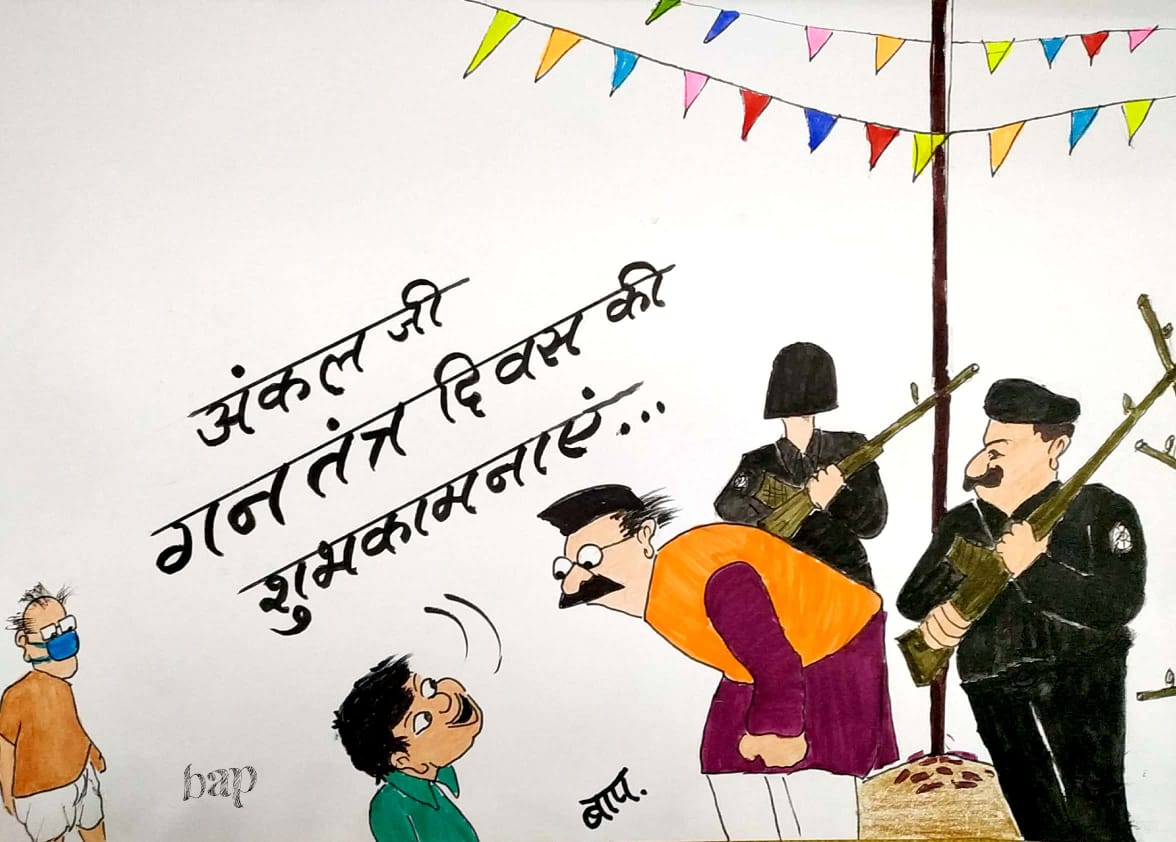 अंकल जी
गनतंत्र दिवस की
शुभकामनाएं...
bap
बाप.